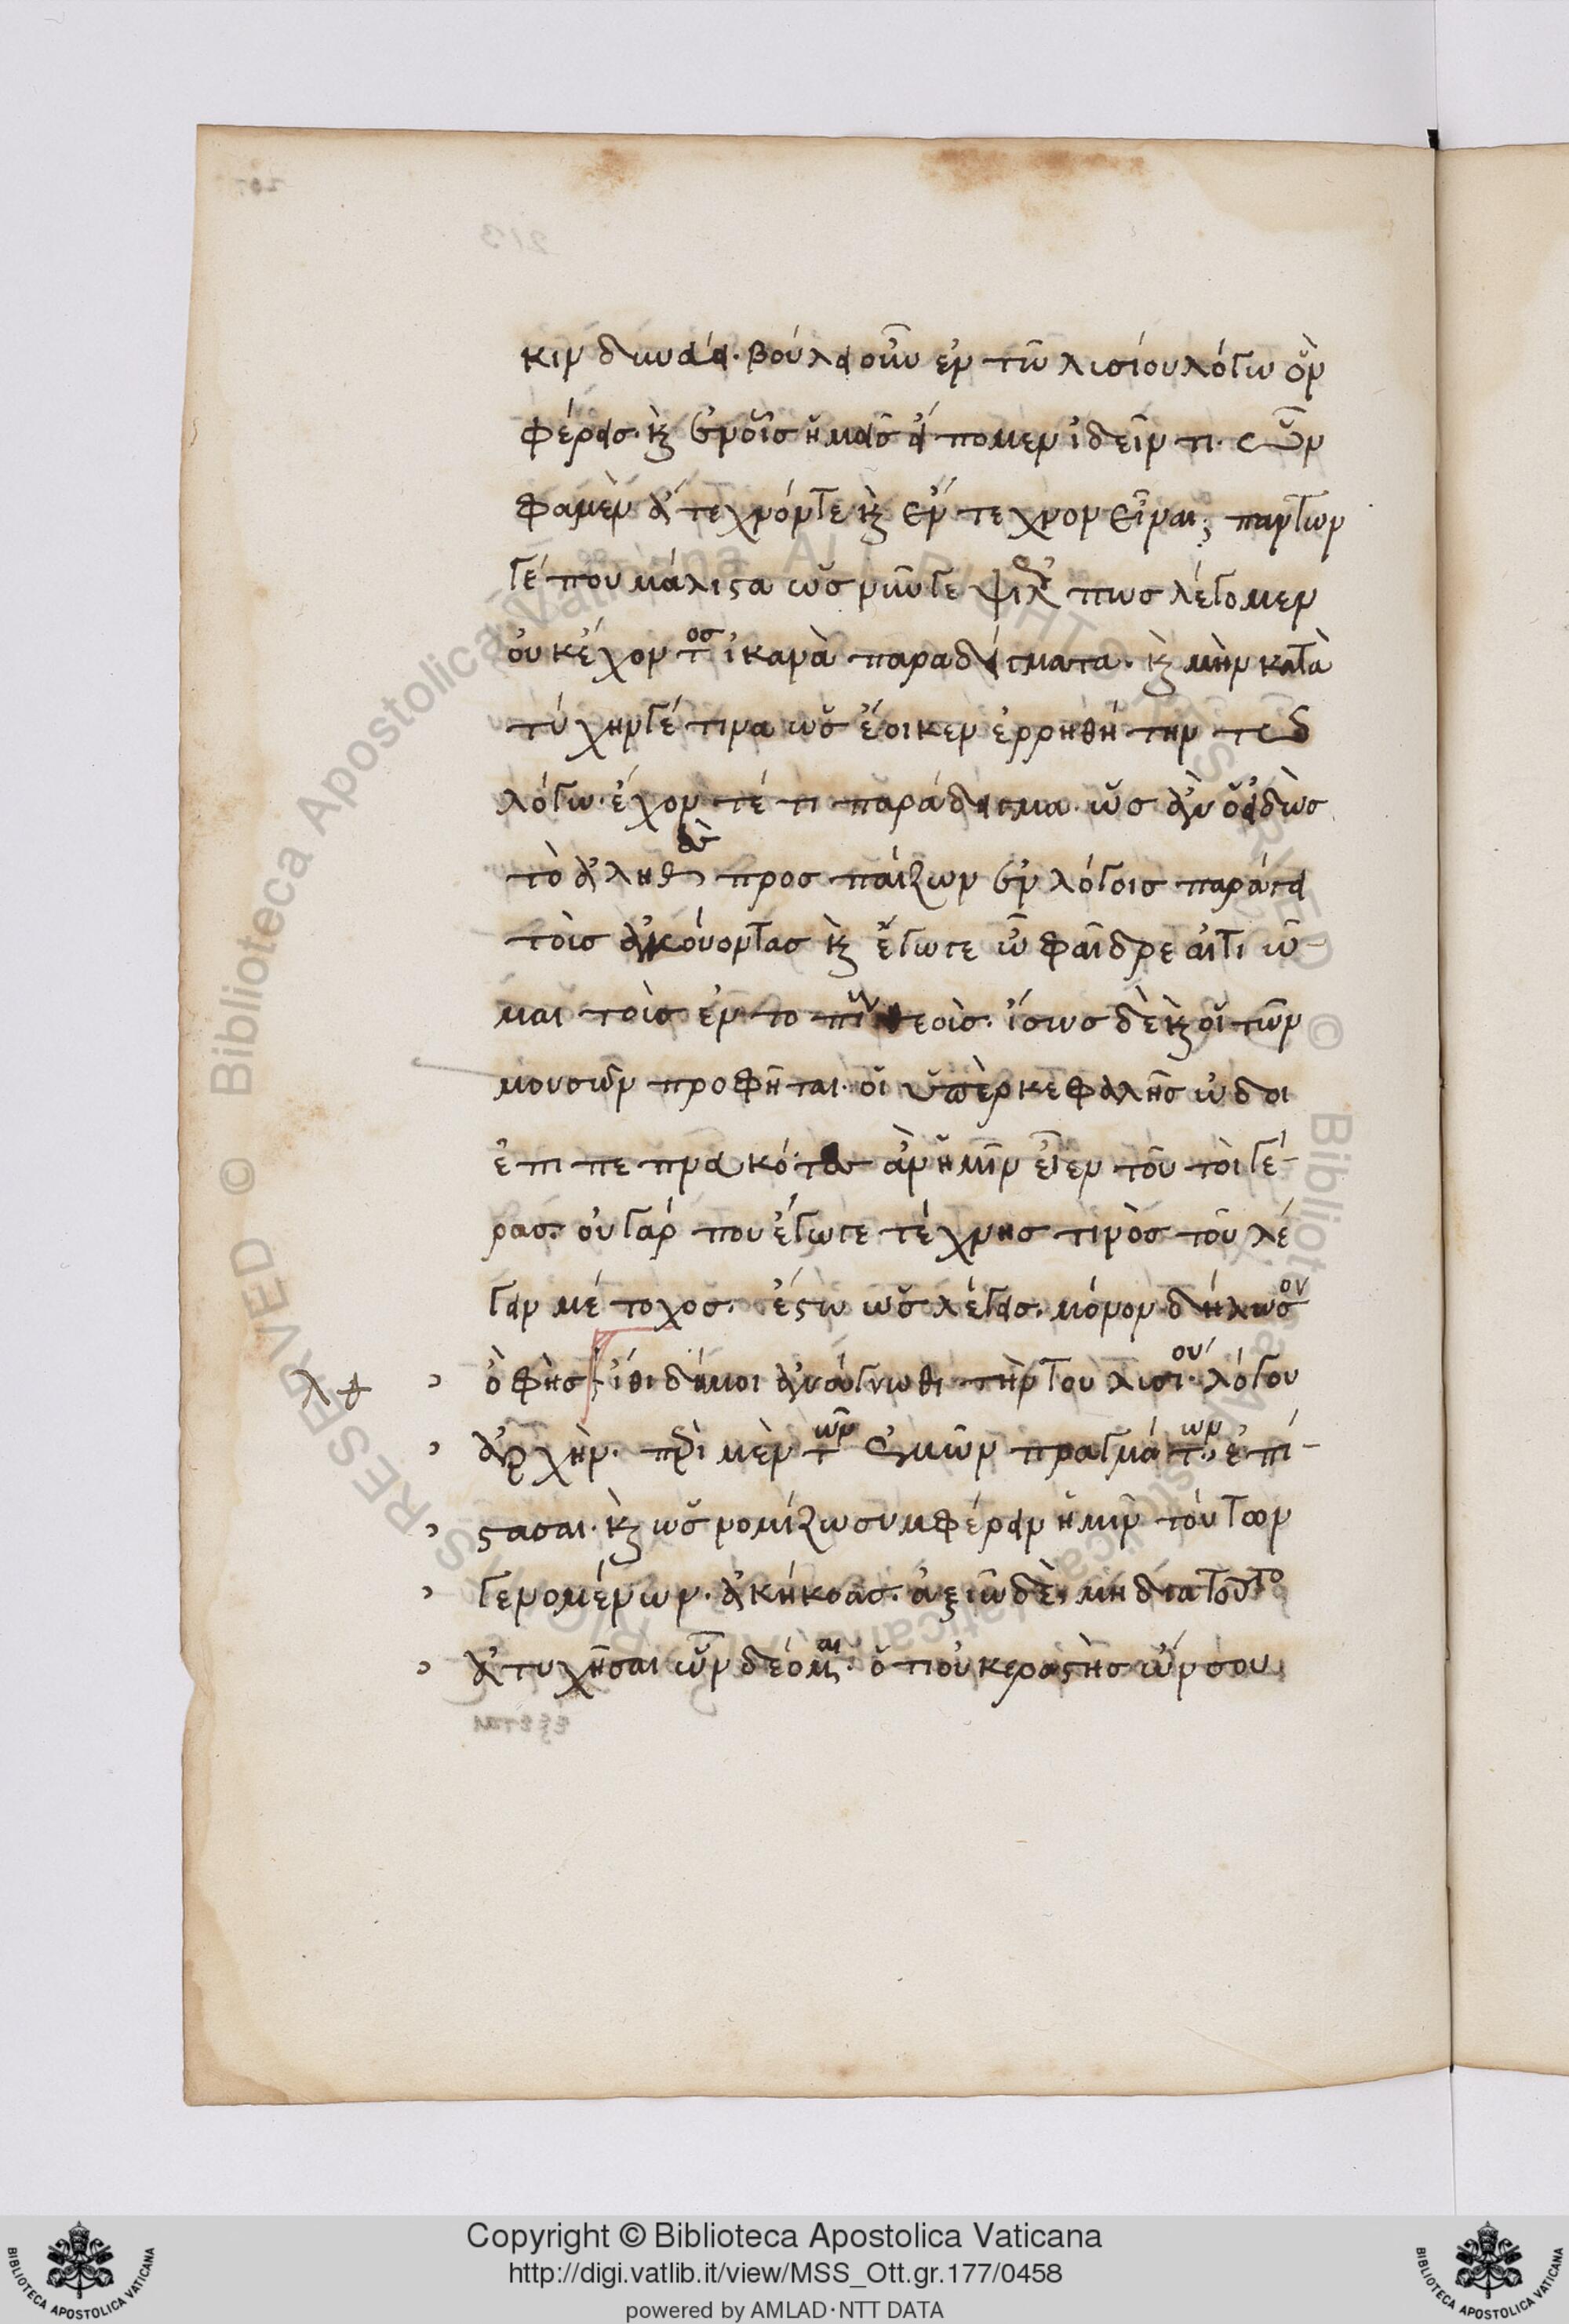 κινδυνεύει. βούλει οὖν ἐν τῷ λυσίου λόγω ὃν
φέρεις. κ̀ ἐν οἷς ἡμεῖς εἴπομεν ἰδεῖν τι. ὧν
φαμὲν ἀτέχνόντε κ̀ ἔντεχνον εἶναι; πάντων
γέ που μάλιστα ὡς νῦν γε ψιλῶς πως λέγομεν
οὐκ ἔχοντος ἱκανὰ παραδείγματα. κ̀ μὴν κατὰ
τύχην γέ τινα ὡς ἔοικεν ἐρρηθήτην τὼ
λόγω. ἔχοντέ τι παράδειγμα. ὡς ἂν ὁ εἰδὼς
τὸ ἀληθὲς προσπαίζων ἐν λόγοις παράγει
τοὺς ἀκούοντας κ̀ ἔγωγε ὦ φαῖδρε αἰτιῶ-
μαι τοὺς ἐντοπίους θεούς. ἴσως δὲ κ̀ οἱ τῶν
μουσῶν προφῆται. οἱ ὑπὲρ κεφαλῆς ὠδοι
ἐπιπεπνευκότες ἂν ἡμῖν εἶεν τοῦτο τὸ γέ-
ρας. οὐ γάρ που ἔγωγε τέχνης τινὸς τοῦ λέ
γειν μέτοχος. ἔστω ὡς λέγεις. μόνον δήλωσον
ὃ φής. ἴθι δή μοι ἀνάγνωθι τὴν τοῦ λυσίου λόγου
ἀρχήν. περὶ μὲν τῶν ἐμῶν πραγμάτων ἐπί-
στασαι. κ̀ ὡς νομίζω συμφέρειν ἡμῖν τούτων
γενομένων. ἀκήκοας. ἀξιῶ δὲ μὴ διὰ τοῦτο
ἀτυχῆσαι ὧν δέομαι. ὅτι οὐκ εραστὴς ὤν σου
Copyright © Biblioteca Apostolica Vaticana
http://digi.vatlib.it/view/MSS_Ott.gr.177/0458
powered by AMLAD·NTT DATA
BIBLIOTECA APOSTOLICA VATICANA
BIBLIOTECA APOSTOLICA VATICANA